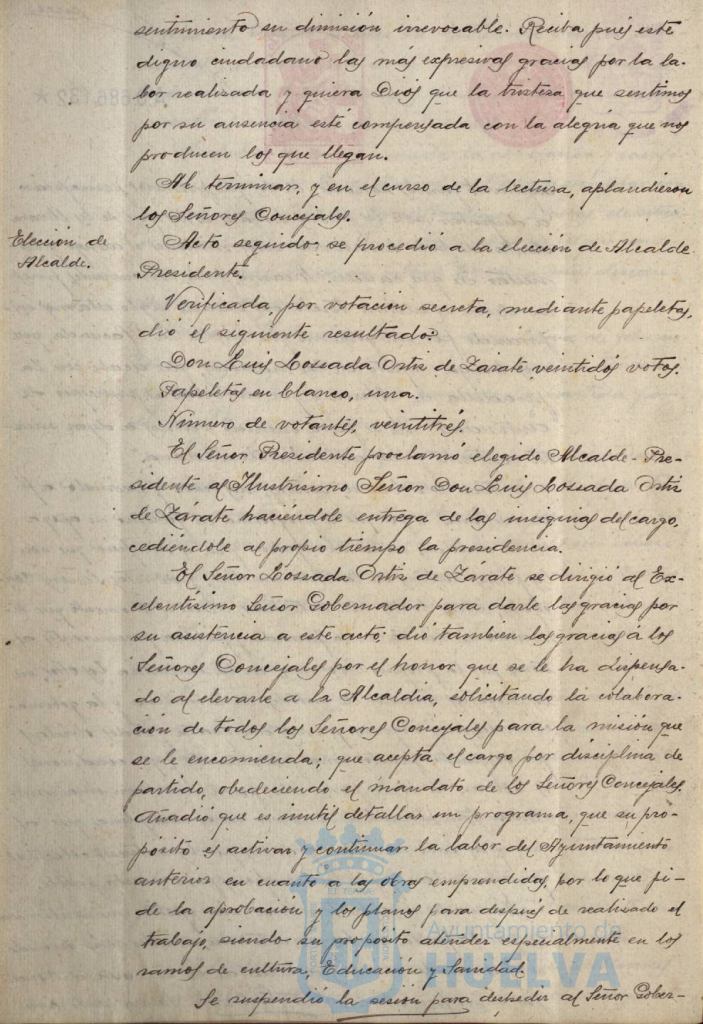 sentimiento su dimisión irrevocable. Reciba pués este
digno ciudadano las más expresivas gracias por la la-
bor realizada y quiera Dios que la tristeza que sentimos
por su ausencia esté compensada con la alegria que nos
producen los que llegan.
Al terminar, y en el curso de la lectura, aplaudieron
los Señores Concejales.
Elección de
Alcalde.
Acto seguido se procedió a la elección de Alcalde
Presidente.
Verificada, por votación secreta, mediante papeletas,
dió el siguiente resultado:
Don Luis Lossada Ortiz de Zárate veintidós votos.
Papeletas en blanco, una.
Número de votantes, veintitrés.
El Señor Presidente proclamó elegido Alcalde-Pre-
sidente al Ilustrísimo Señor Don Luis Lossada Ortiz
de Zárate haciéndole entrega de las insignias del cargo,
cediéndole al propio tiempo la presidencia.
El Señor Lossada Ortiz de Zárate se dirigió al Ex-
celentísimo Señor Gobernador para darle las gracias por
su asistencia a este acto; dió tambien las gracias á los
Señores Concejales por el honor que se le ha dispensa-
do al elevarle a la Alcaldia, solicitando la colabora-
ción de todos los Señores Concejales para la misión que
se le encomienda; que acepta el cargo por disciplina de
partido, obedeciendo el mandato de los Señores Concejales.
Añadió que es inutil detallar un programa, que su pro-
pósito es activar y continuar la labor del Ayuntamiento
anterior en cuanto a las obras emprendidas, por lo que pi-
de la aprobación y los planos para después de realizado el
trabajo, siendo su propósito atender especialmente en los
ramos de cultura, Educación y Sanidad.
Se suspendió la sesión para despedir al Señor Gober-
Ayuntamiento de
HUELVA